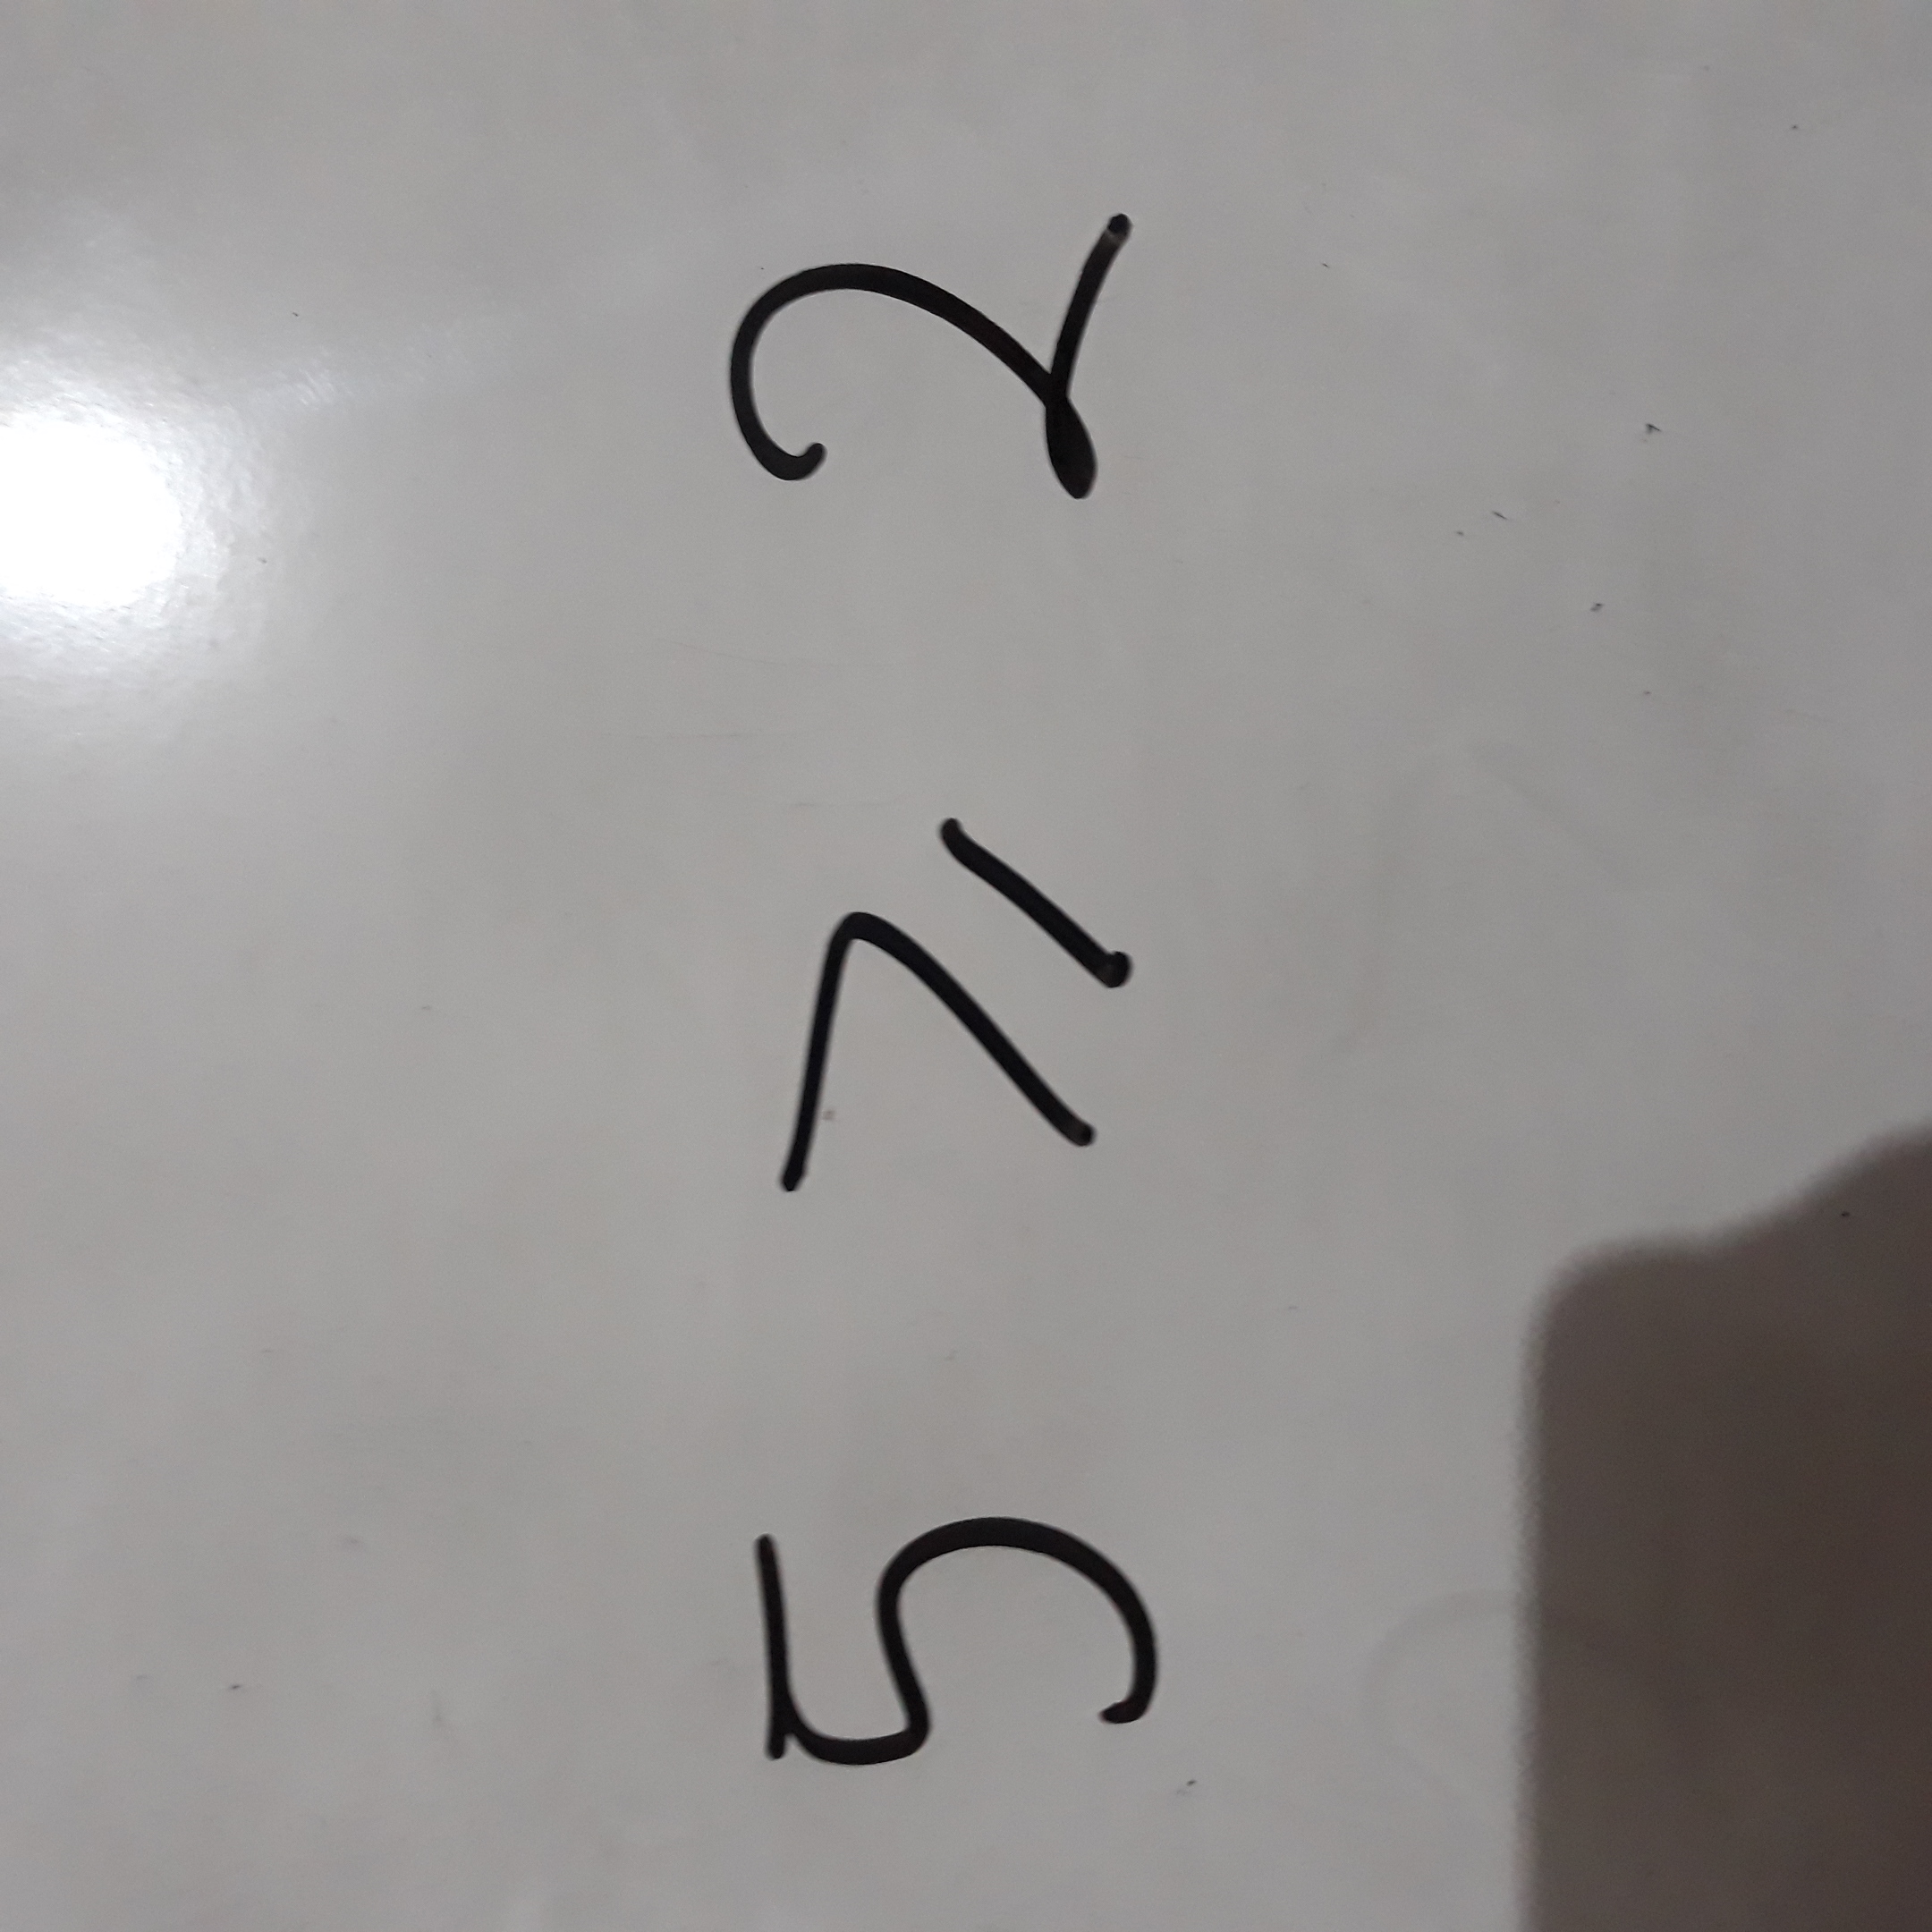 5 ⩾ 2